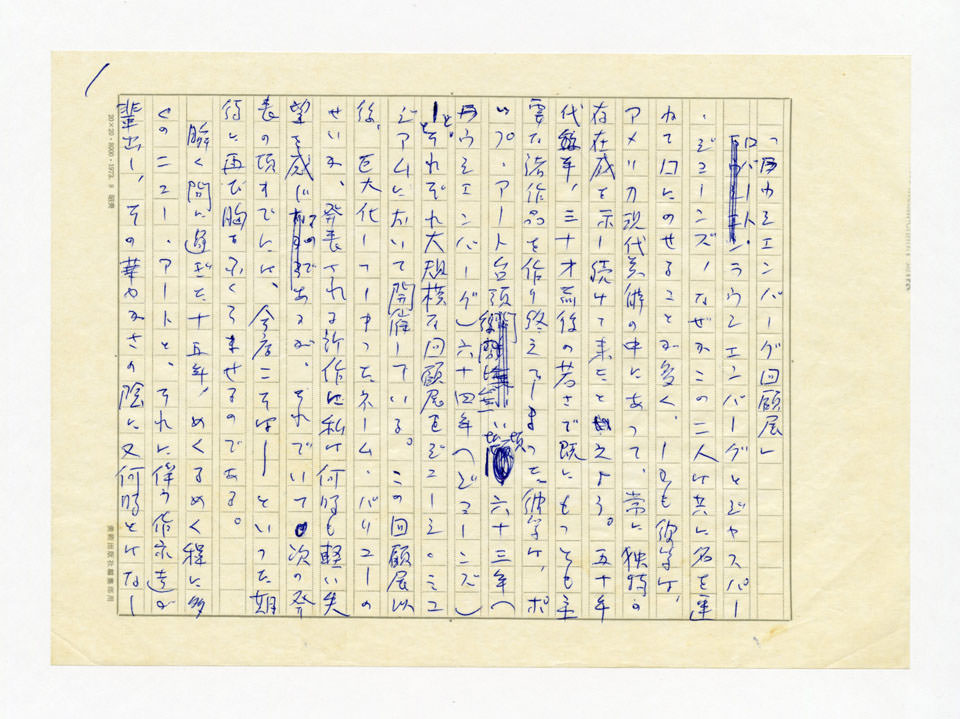 「ラウシェンバーグ回顧展」
ロバート・ラウシェンバーグとジャスパー
・ジョーンズ、なぜかこの二人は共に名を連
ねて口にのせることが多く、しかも彼等は、
アメリカ現代美術の中にあって、常に独特の
存在感を示し続けて来たと云えよう。五十年
代後半、三十才前後の若さで既にもっとも主
要な諸作品を作り終えてしまった彼等は、ポ
ップ・アート台頭の頃 六十三年(
ラウシェンバーグ)六十四年(ジョーンズ)
と、それぞれ大規模な回顧展をジューイシ・ミュ
ジアムにおいて開催している。この回顧展以
後、巨大化してしまったネーム・バリューの
せいか、発表される新作に私は何時も軽い失
望を感じるのであるが、それでいて次の発
表の頃までには、今度こそは――といった期
待に再び胸をふくらませるのである。
瞬く間に過ぎた十五年、めくるめく程に多
くのニュー・アートと、それに伴う作家達が
輩出し、その華やかさの陰に又何時とはなし
20×20・8000・1973. 9 昭湾
美術出版社編集部用